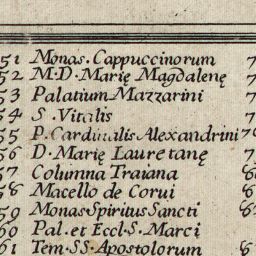 51 Monas. Cappuccinorum 7
52 M.D. Marię Magdalenę 7
53 Palatium Mazzarini 7
54 S. Vitalis 7
55 P. Cardinalis Alexandrini 7
56 D. Marię Lauretanę 7
57 Columna Traiana 8
58 Macello de Corui 8
59 Monas. Spiritus Sancti 8
60 Pal. et Eccl. S. Marci
61 Tem. SS. Apostolorum 8